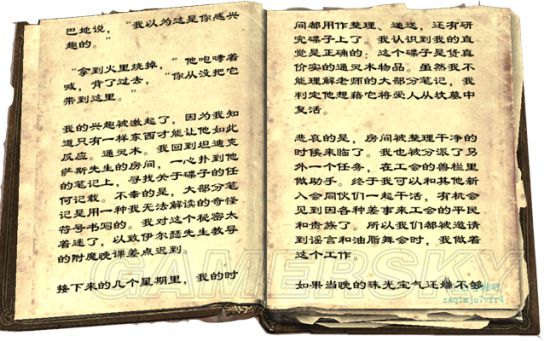 巴地说，“我以为这是你感兴
趣的。”
“拿到火里烧掉，”他咆哮着
喊，背了过去，“你从没把它
带到这里。”
我的兴趣被激起了，因为我知
道只有一样东西才能让他如此
反应。通灵术。我回到坦迪克
萨斯先生的房间，一心扑到他
的笔记上，寻找关于碟子的任
何记载。不幸的是，大部分笔
记是用一种我无法解读的奇怪
符号书写的。我对这个秘密太
着迷了，以致伊尔瑟先生教导
的附魔晚课差点迟到。
接下来的几个星期里，我的时
间都用作整理、递送，还有研
究碟子上了。我认识到我的直
觉是正确的：这个碟子是货真
价实的通灵术物品。虽然我不
能理解老师的大部分笔记，我
判定他想藉它将爱人从坟墓中
复活。
悲哀的是，房间被整理干净的
时候来临了。我也被分派了另
外一个任务，在工会的兽栏里
做助手。终于我可以和其他新
入会同伙们一起干活，有机会
见到因各种差事来工会的平民
和贵族了。所以我们都被邀请
到谣言和油脂舞会时，我做着
这个工作。
如果当晚的珠光宝气还嫌不够
GAMERSKY